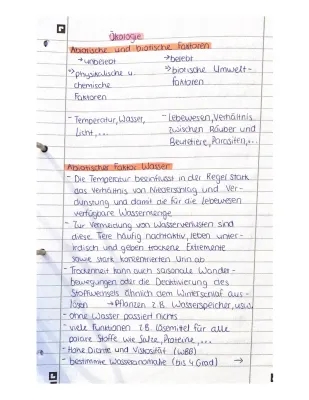 Ökologie
Abiotische und biotische Faktoren
→unbelebt →belebt
→physikalische u. →biotische Umwelt-
chemische faktoren
Faktoren
- Temperatur, Wasser, - Lebewesen, Verhältnis
Licht,... zwischen Räuber und
Beutetiere, Parasiten,...
Abiotischer Faktor Wasser
- Die Temperatur beeinflusst in der Regel stark
das Verhältnis von Niederschlag und Ver-
dunstung und damit die für die Lebewesen
verfügbare Wassermenge
- Zur Vermeidung von Wasserverlusten sind
diese Tiere häufig nachtaktiv, leben unter-
irdisch und geben trockene Extremente
sowie stark konzentrierten Urin ab
- Trockenheit kann auch saisonale Wander-
bewegungen oder die Deaktivierung des
Stoffwechsels ähnlich dem Winterschlaf aus-
lösen →Pflanzen z.B. Wasserspeicher, usw.
- ohne Wasser passiert nichts
- viele Funktionen z.B. Lösemittel für alle
polare Stoffe wie Salze, Proteine,...
- Hohe Dichte und Viskosität (WBB)
- bestimmte Wasseranomalie (bis 4 Grad) →